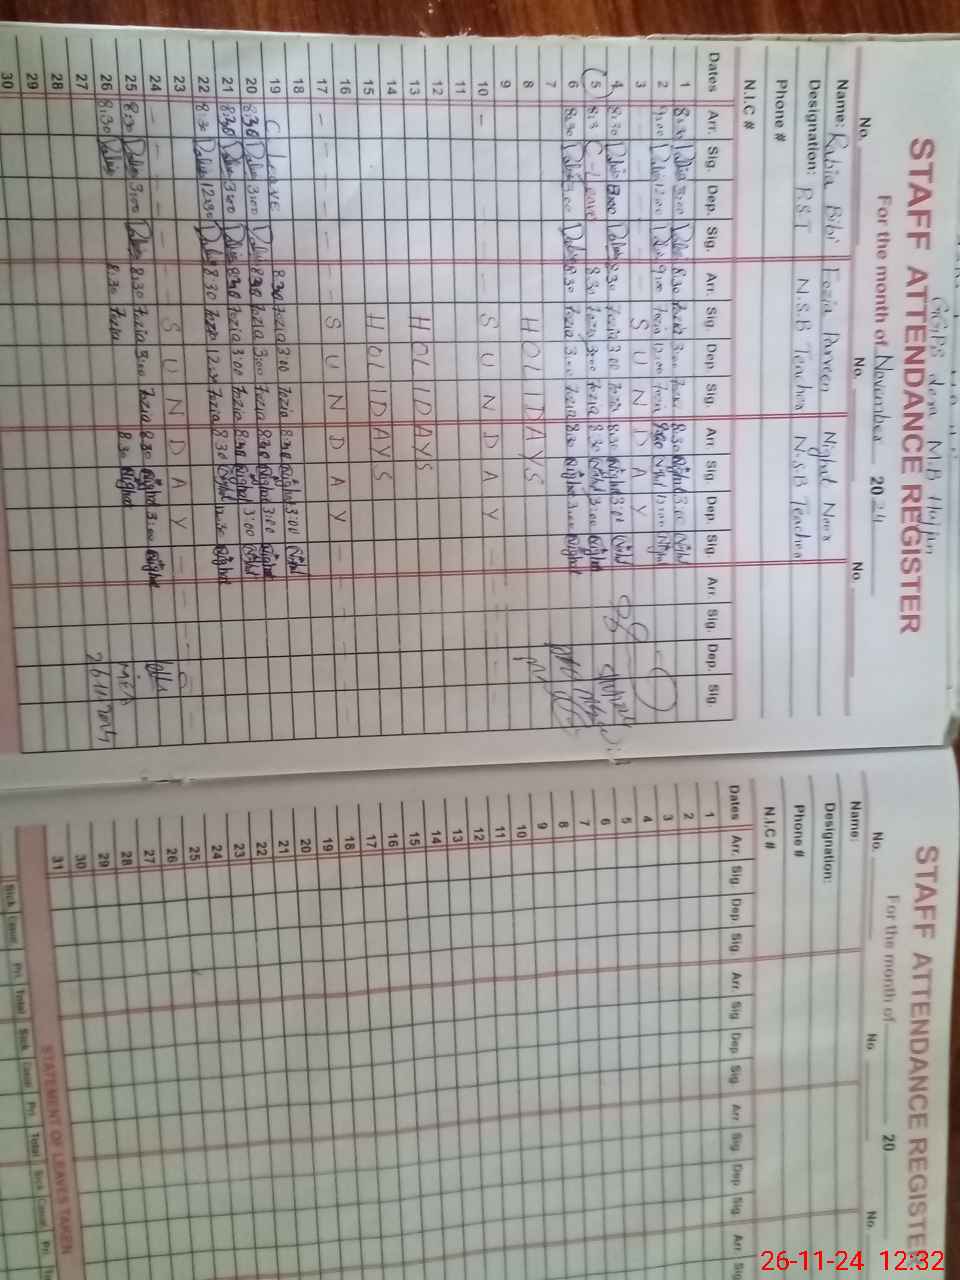 GGPS M.B
STAFF ATTENDANCE REGISTER
For the month of November 2024
No. No. No.
Name: Rabia Bibi Fozia Parveen Night Noor
Designation: P.S.T N.S.B Teacher N.S.B Teacher
Phone #
N.I.C #
Dates Arr. Sig. Dep. Sig. Arr. Sig. Dep. Sig. Arr. Sig. Dep. Sig. Arr. Sig. Dep. Sig.
1 8:30 Rabia 3:00 Rabia 8:30 Fozia 3:00 Fozia 8:30 Night 3:00 Night
2 9:00 Rabia 12:00 Rabia 9:00 Fozia 12:00 Fozia 9:00 Night 12:00 Night
3 - - - - - S U N D A Y - - -
4 8:30 Rabia 3:00 Rabia 8:30 Fozia 3:00 Fozia 8:30 Night 3:00 Night
5 8:3 C-Leave 8:30 Fozia 3:00 Fozia 8:30 Night 3:00 Night
6 8:30 Rabia 3:00 Rabia 8:30 Fozia 3:00 Fozia 8:30 Night 3:00 Night
7
8 HOLIDAYS
9
10 - - - - - S U N D A Y - -
11
12
13 HOLIDAYS
14
15 HOLIDAYS
16
17 - - - - - S U N D A Y - - -
18
19 C-Leave 8:30 Fozia 3:00 Fozia 8:30 Night 3:00 Night
20 8:30 Rabia 3:00 Rabia 8:30 Fozia 3:00 Fozia 8:30 Night 3:00 Night
21 8:30 Rabia 3:00 Rabia 8:30 Fozia 3:00 Fozia 8:30 Night 3:00 Night
22 8:30 Rabia 12:30 Rabia 8:30 Fozia 12:30 Fozia 8:30 Night 12:30 Night
23
24 - - - - - S U N D A Y - - -
25 8:30 Rabia 3:00 Rabia 8:30 Fozia 3:00 Fozia 8:30 Night 3:00 Night
26 8:30 Rabia 8:30 Fozia 8:30 Night
27
28
29
30
MEA
26-11-2024
STAFF ATTENDANCE REGISTER
For the month of 20
No. No. No.
Name:
Designation:
Phone #
N.I.C #
Dates Arr. Sig. Dep. Sig. Arr. Sig. Dep. Sig. Arr. Sig. Dep. Sig. Arr.
1
2
3
4
5
6
7
8
9
10
11
12
13
14
15
16
17
18
19
20
21
22
23
24
25
26
27
28
29
30
31
STATEMENT OF LEAVES TAKEN
Sick Casul Pri. Total Sick Casul Pri. Total Sick Casul Pri.
26-11-24 12:32